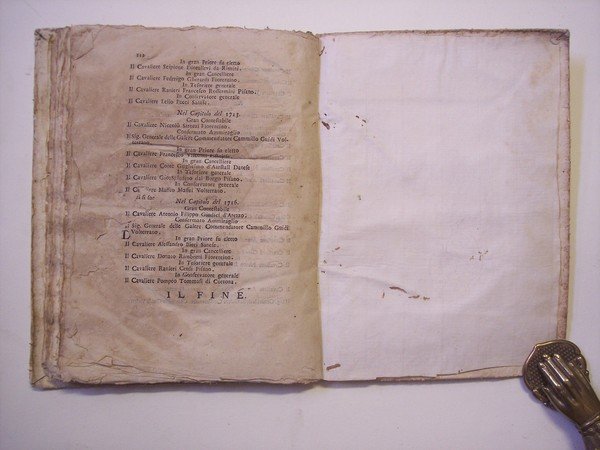 112
In gran Priore fu eletto
Il Cavaliere Scipione Fiorentieri da Rimini.
In gran Cancelliere
Il Cavaliere Federigo Gherardi Fiorentino.
In Tesoriere generale
Il Cavaliere Ranieri Francesco Rosselmini Pisano.
In Conservatore generale
Il Cavaliere Lelio Pecci Sanese.
Nel Capitolo del 1713.
Gran Contestabile
Il Cavaliere Niccolò Strozzi Fiorentino.
Confermato Ammiraglio
Il Sig. Generale delle Galere Commendatore Cammillo Guidi Vol-
terrano.
In gran Priore fu eletto
Il Cavaliere Francesco
In gran Cancelliere
Il Cavaliere Conte Guglielmo d'Anstall Danese
In Tesoriere generale
Il Cavaliere dal Borgo Pisano.
In Conservatore generale
Il Maffeo Maffei Volterrano.
Nel Capitolo del 1716.
Gran Contestabile
Il Cavaliere Antonio Filippo Giudici d'Arezzo.
Confermato Ammiraglio
Il Sig. Generale delle Galere Commendatore Cammillo Guidi
Volterrano.
In gran Priore fu eletto
Il Cavaliere Alessandro Bieri Sanese.
In gran Cancelliere
Il Cavaliere Donato Rambotti Fiorentino.
In Tesoriere generale
Il Cavaliere Ranieri Ceuli Pisano.
In Conservatore generale
Il Cavaliere Pompeo Tommasi di Cortona.
IL FINE.